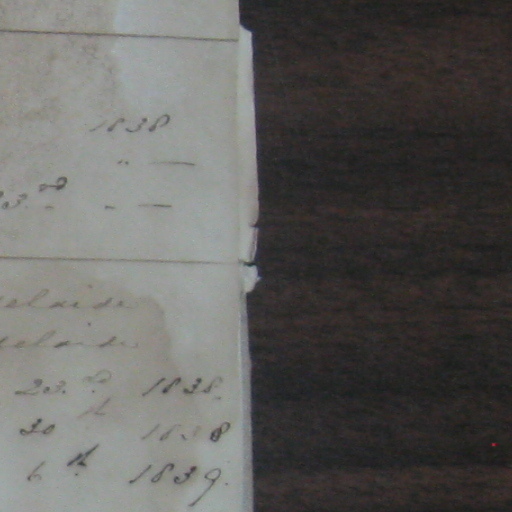 1838
" —
23.rd - —
elaide
elaide
23.rd 1838.
30th 1838
6th 1839.